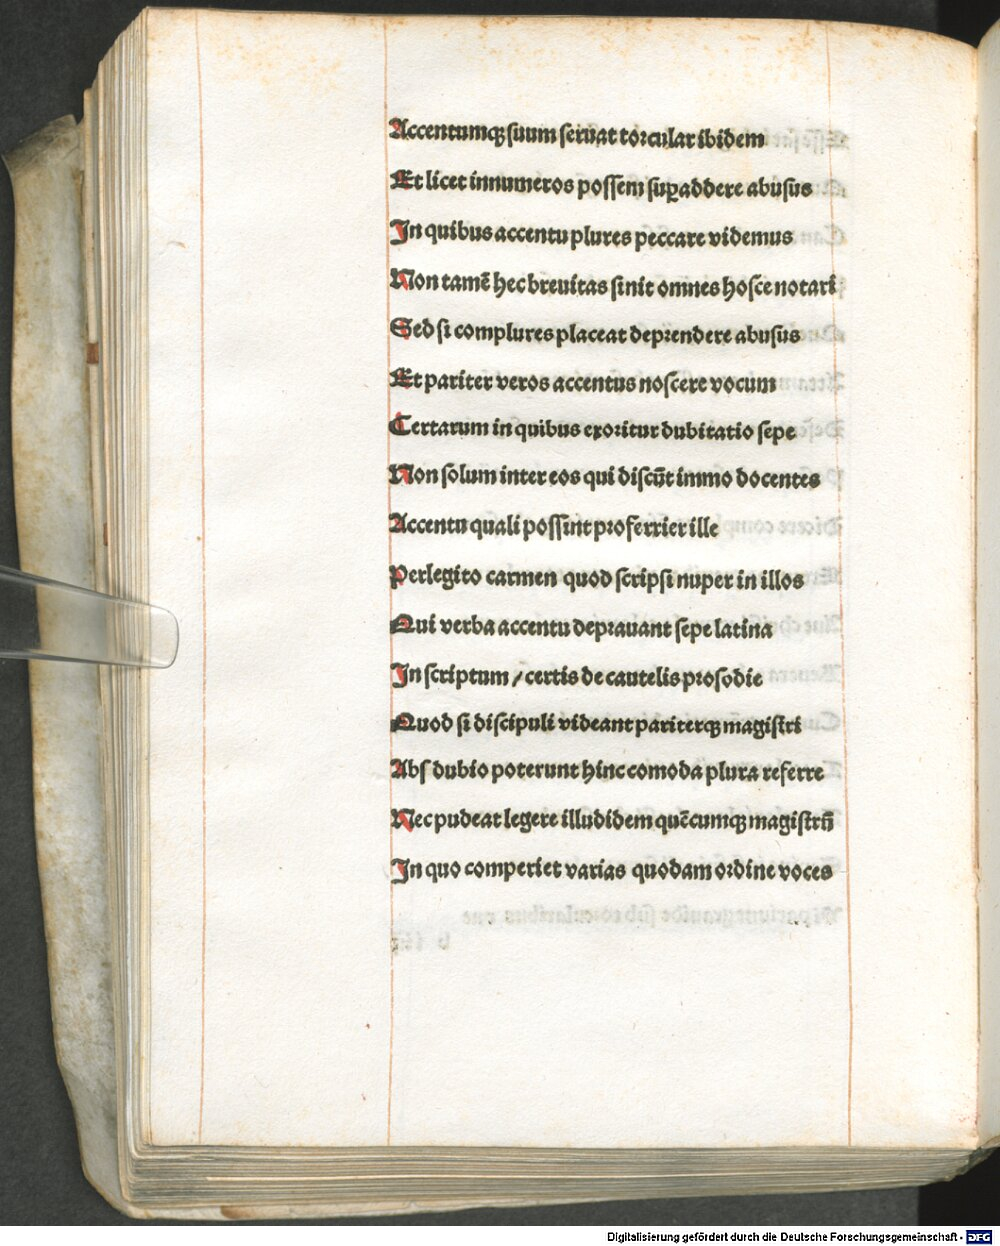 Accentumqꝫ suum seruat torcular ibidem
Et licet innumeros possem suꝑaddere abusus
In quibus accentu plures peccare videmus
Non tamē hec breuitas sinit omnes hosce notari
Sed si complures placeat deprendere abusus
Et pariter veros accentus noscere vocum
Certarum in quibus exoritur dubitatio sepe
Non solum inter eos qui discūt immo docentes
Accentu quali possint proferrier ille
Perlegito carmen quod scripsi nuper in illos
Qui verba accentu deprauant sepe latina
In scriptum / certis de cautelis prosodie
Quod si discipuli videant pariterqꝫ magistri
Abs dubio poterunt hinc comoda plura referre
Nec pudeat legere illud idem quēcumqꝫ magistrū
In quo comperiet varias quodam ordine voces
Digitalisierung gefördert durch die Deutsche Forschungsgemeinschaft - DFG